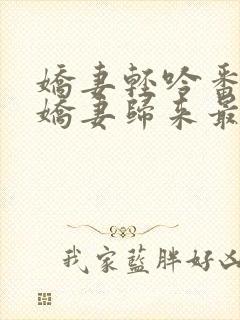 嬌妻輕吟番
嬌妻歸來最
我家藍胖好凶